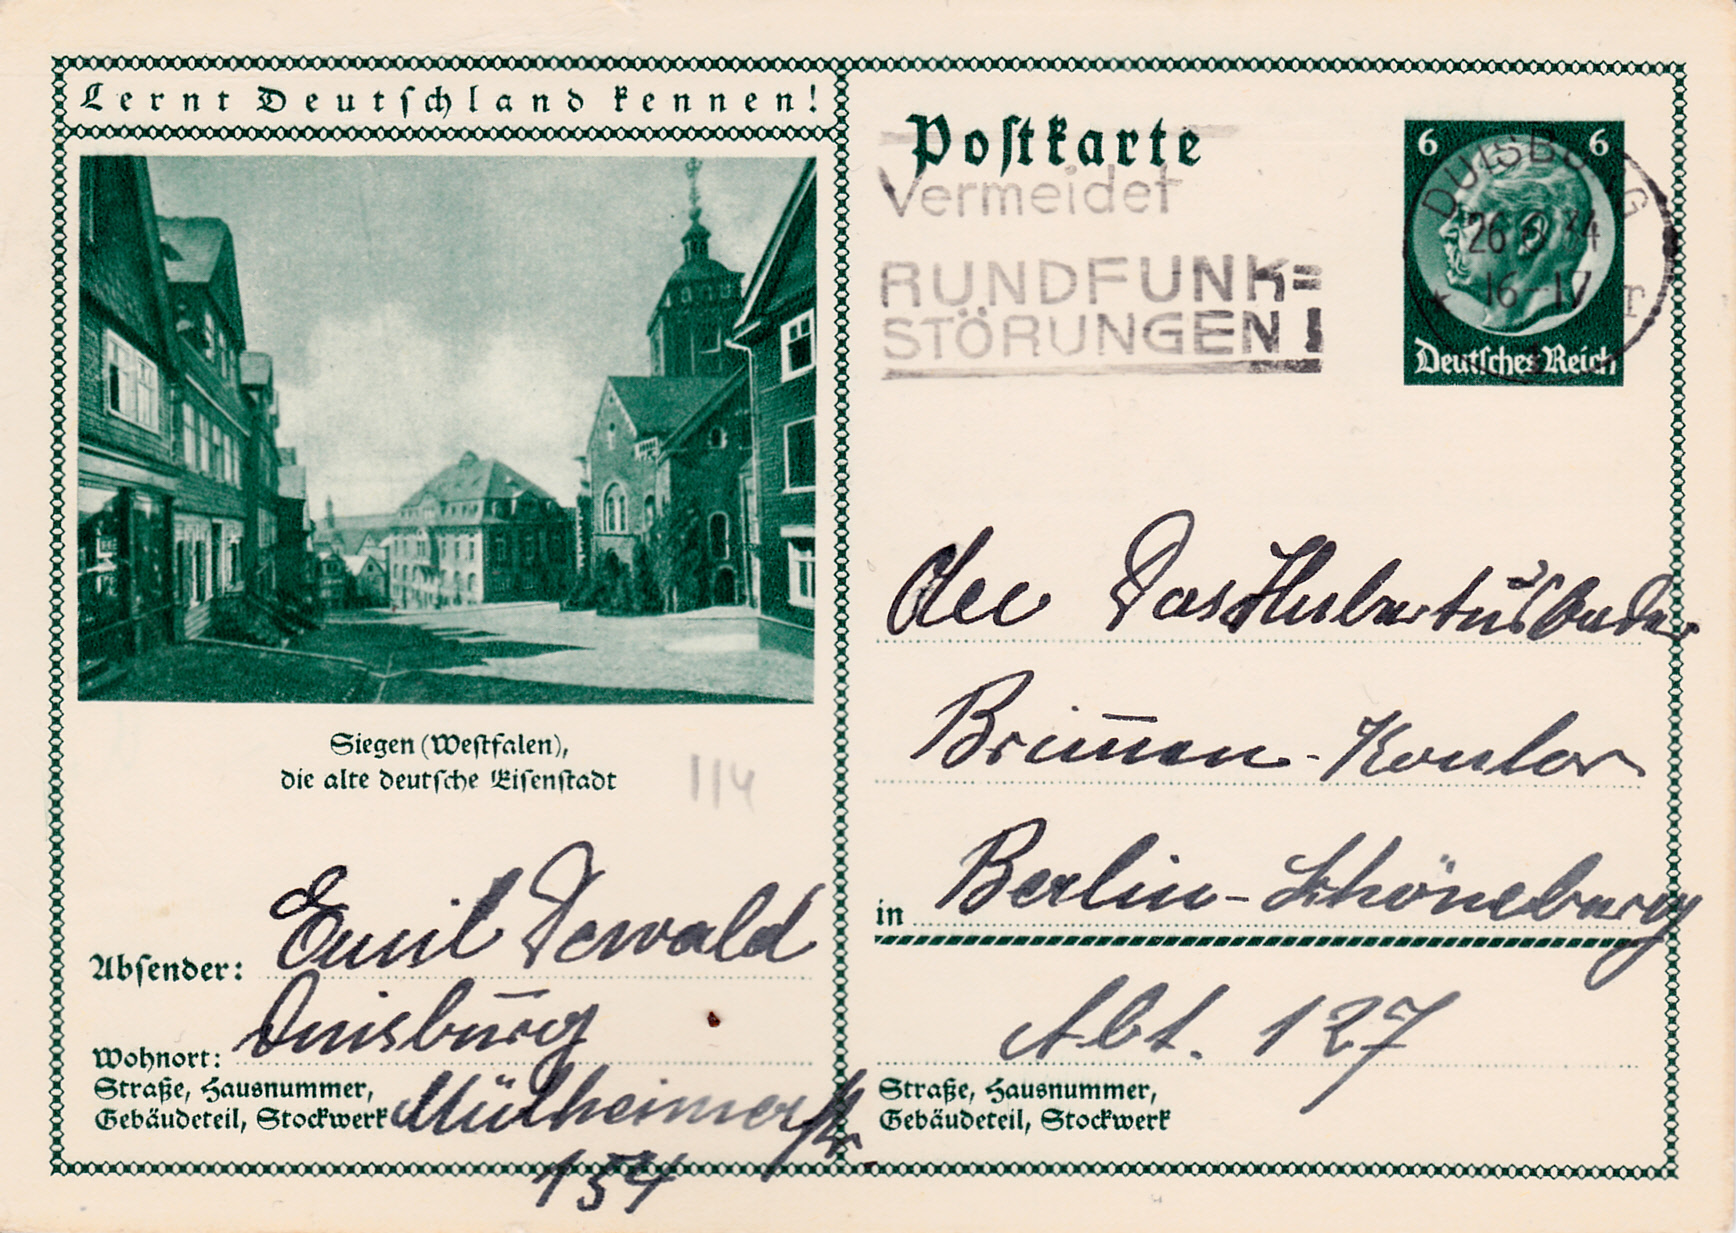 Lernt Deutschland kennen!
Siegen (Westfalen),
die alte deutsche Eisenstadt
114
Absender: Emil Dewald
Wohnort: Duisburg
Straße, Hausnummer,
Gebäudeteil, Stockwerk Mülheimerstr.
154
Postkarte
Vermeidet
RUNDFUNK=
STÖRUNGEN!
6 6
DUISBURG
26 34
16-17
Deutsches Reich
Brunnen-Kontor
in Berlin-Schöneberg
Abt. 127
Straße, Hausnummer,
Gebäudeteil, Stockwerk